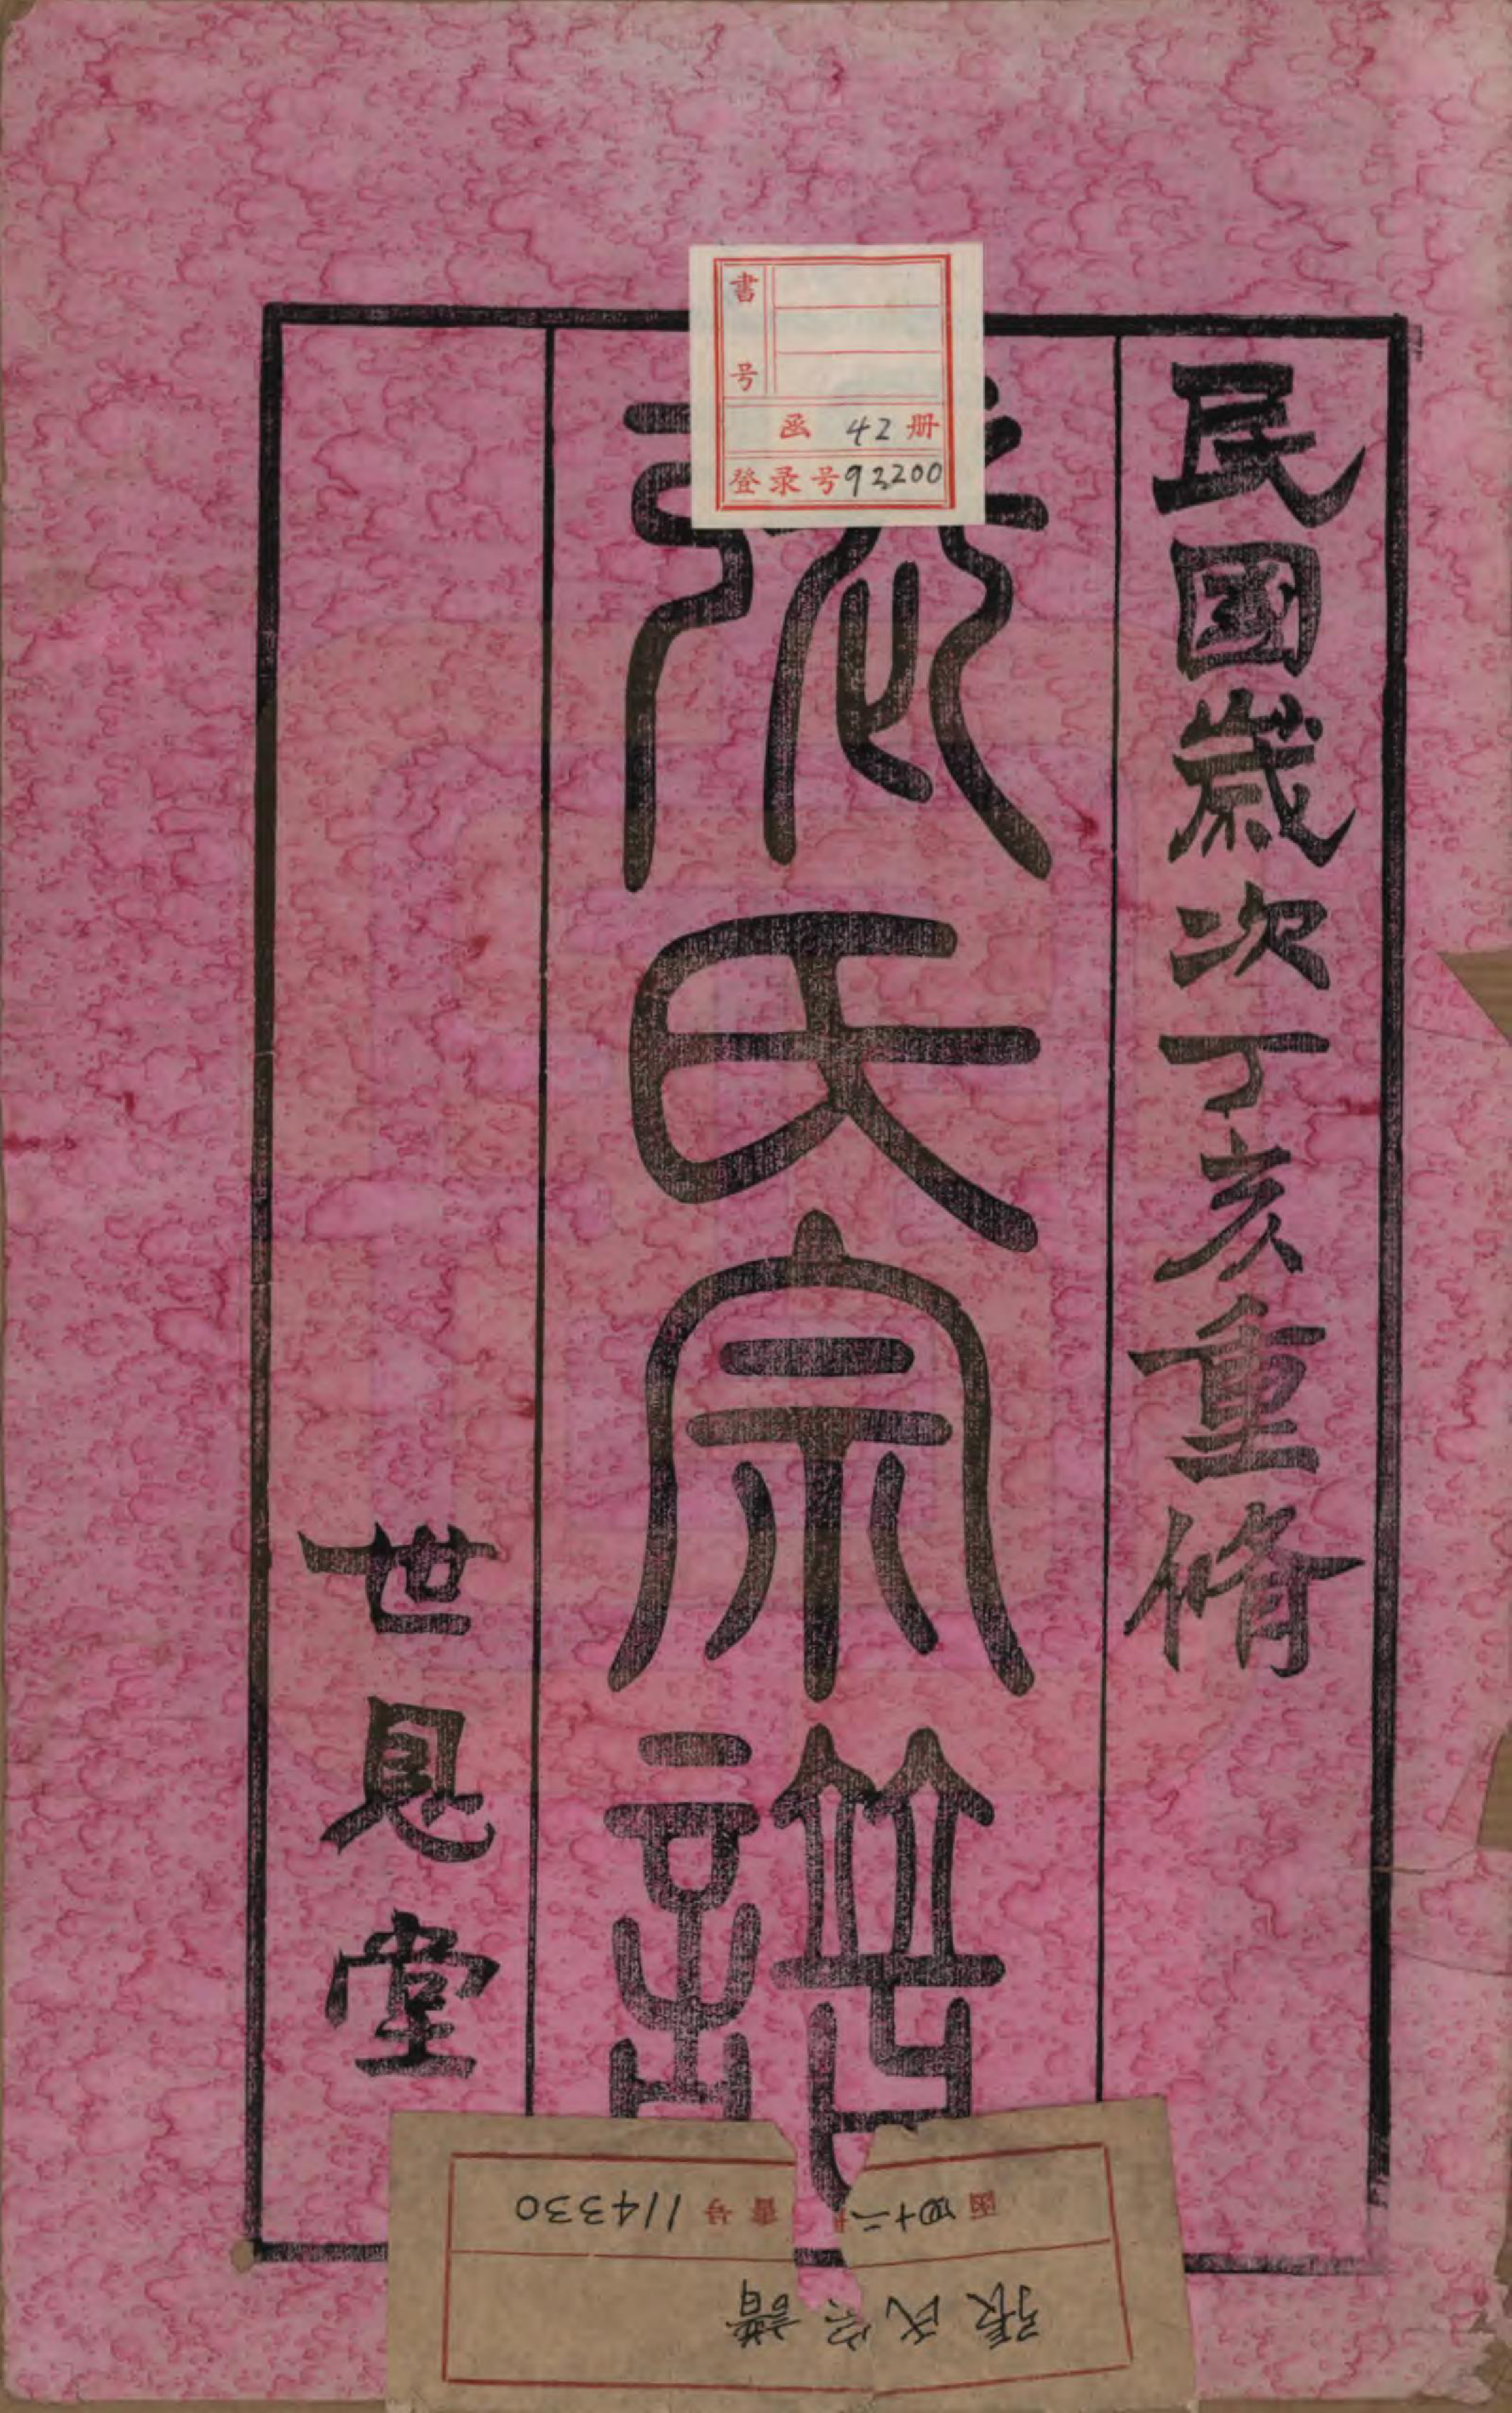 民國歲次丁亥重脩
張氏宗譜
世恩堂
書号
函 42 册
登录号 93200
函 四十二
書号 114330
張氏宗譜